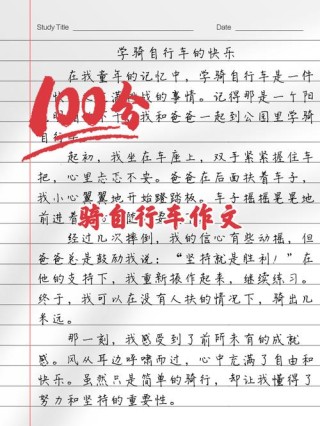 Study Title
Date
学骑自行车的快乐
在我童年的记忆中，学骑自行车是一件
100分
我和爸爸一起到公园里学骑
起初，我坐在车座上，双手紧紧握住车
把，心里忐忑不安。爸爸在后面扶着车子，
我小心翼翼地开始蹬踏板。车子摇摇晃晃地
前进着
骑自行车作文
经过几次摔倒，我的信心有些动摇，但
爸爸总是鼓励我说：“坚持就是胜利！”在
他的支持下，我重新振作起来，继续练习。
终于，我可以在没有人扶的情况下，骑出几
米远。
那一刻，我感受到了前所未有的成就
感。风从耳边呼啸而过，心中充满了自由和
快乐。虽然只是简单的骑行，却让我懂得了
努力和坚持的重要性。